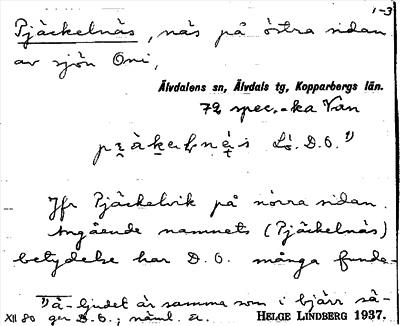 1-3
Pjäckelnäs, näs på östra sidan
av sjön Oni,
Älvdalens sn, Älvdals tg, Kopparbergs län.
72 spec.-ka Van
D.O. 1)
Jfr Pjäckelvik på norra sidan.
Angående namnets (Pjäckelnäs)
betydelse har D.O. många funde-
1) ä-ljudet är samma som i bjärr sä-
XII 80 ger D.O.; näml. ä.
HELGE LINDBERG 1937.